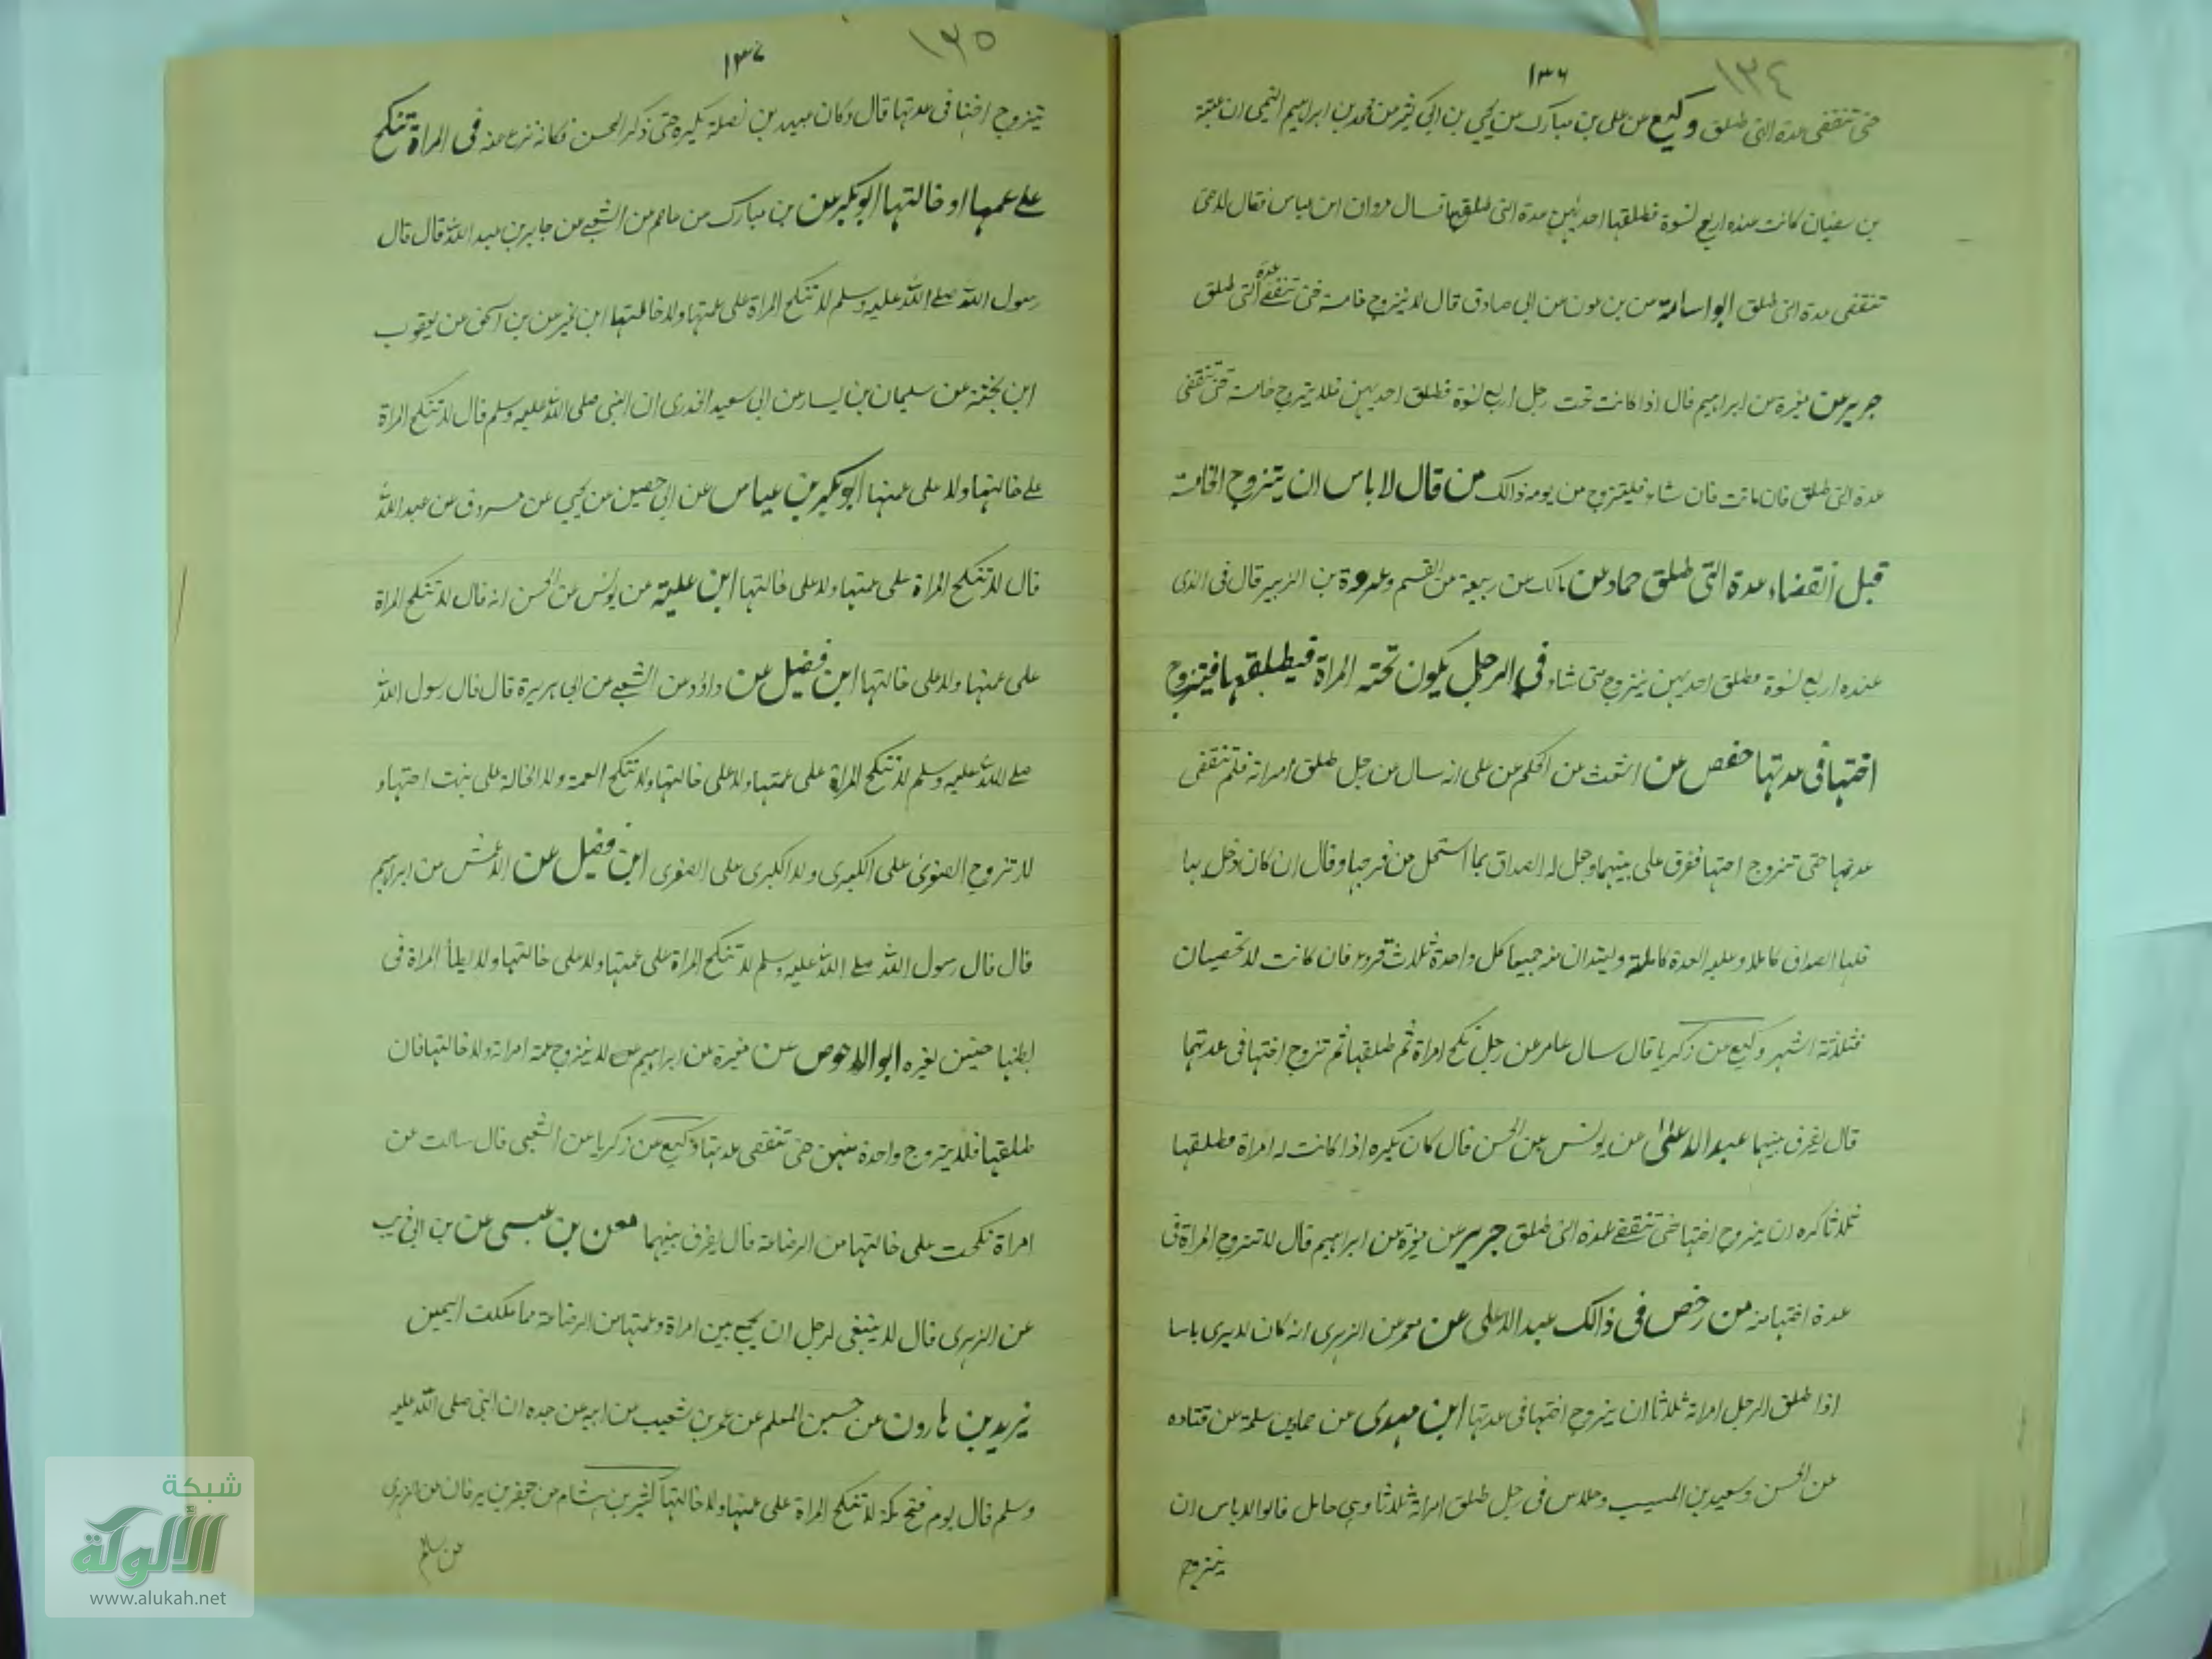 ١٣٤
١٣٦
حتى تنقضى عدة التى طلق وكيع عن على بن مبارك عن يحيى بن ابى كثير عن محمد بن ابراهيم التيمى ان عتبة
بن سفيان كانت عنده اربع نسوة فطلقها احديهن عدة التى طلقها فسال مروان ابن عباس فقال لا حتى
تنقضى عدة التى طلق ابو اسامة عن بن عون عن ابى صادق قال لا يتزوج خامسة حتى تنقضى عدة التى طلق
جرير عن مغيرة عن ابراهيم قال اذا كانت تحت رجل اربع نسوة فطلق احديهن فلا يتزوج خامسة حتى تنقضى
عدة التى طلق فان ماتت فان شاء فليتزوج من يومه ذالك من قال لا باس ان يتزوج الخامسة
قبل انقضاء عدة التى طلق حماد عن مالك عن ربيعة عن القسم وعروة بن الزبير قال فى الذى
عنده اربع نسوة فطلق احديهن يتزوج متى شاء فى الرجل يكون تحته المراة فيطلقها فيتزوج
اختها فى عدتها حفص عن اشعث عن الحكم عن على انه سال عن رجل طلق امراته فلم تنقضى
عدتها حتى تزوج اختها ففرق على بينهما وجعل له الصداق بما استحل من فرجها وقال ان كان دخل بها
فلها الصداق كاملا وعليه العدة كاملة ويعتدان منه جميعا كل واحدة ثلاث قروء فان كانت لا تحيضان
فثلاثة اشهر وكيع عن زكريا قال سال عامر عن رجل نكح امراة ثم طلقها ثم تزوج اختها فى عدتها
قال يفرق بينهما عبد الاعلى عن يونس عن الحسن قال كان يكره اذا كانت له امراة فطلقها
ثلاثا كره ان يتزوج اختها حتى تنقضى عدة التى طلق جرير عن مغيرة عن ابراهيم قال لا تتزوج المراة فى
عدة اختها منه من رخص فى ذالك عبد الاعلى عن معمر عن الزهرى انه كان لا يرى باسا
اذا طلق الرجل امراته ثلاثا ان يتزوج اختها فى عدتها ابن مهدى عن حماد بن سلمة عن قتاده
عن الحسن وسعيد بن المسيب وخلاس فى رجل طلق امراته ثلاثا وهى حامل قالوا لا باس ان
يتزوج
١٣٥
١٣٧
يتزوج اختها فى عدتها قال وكان عبيد بن نضلة يكره حتى ذكر الحسن فكانه نزع عنه فى المراة تنكح
على عمتها او خالتها ابو بكير عن بن مبارك عن عاصم عن الشعبى عن جابر بن عبد الله قال قال
رسول الله صلى الله عليه وسلم لا تنكح المراة على عمتها ولا خالتها ابن نمير عن بن اسحق عن يعقوب
ابن عتبة عن سليمان بن يسار عن ابى سعيد الخدرى ان النبى صلى الله عليه وسلم قال لا تنكح المراة
على خالتها ولا على عمتها ابو بكير بن عياس عن ابى حصين عن يحيى عن مسروق عن عبد الله
قال لا تنكح المراة على عمتها ولا على خالتها ابن علية عن يونس عن الحسن انه قال لا تنكح المراة
على عمتها ولا على خالتها ابن فضيل عن داؤد عن الشعبى عن ابى هريرة قال قال رسول الله
صلى الله عليه وسلم لا تنكح المراة على عمتها ولا على خالتها ولا تنكح العمة ولا الخالة على بنت اختها و
لا تزوج الصغرى على الكبرى ولا الكبرى على الصغرى ابن فضيل عن الاعمش عن ابراهيم
قال قال رسول الله صلى الله عليه وسلم لا تنكح المراة على عمتها ولا على خالتها ولا يطأ المراة فى
بطنها جنين لغيره ابو الاحوص عن مغيرة عن ابراهيم لا يتزوج عمة امراته ولا خالتها فان
طلقها فلا يتزوج واحدة منهن حتى تنقضى عدتها وكيع عن زكريا عن الشعبى قال سالت عن
امراة نكحت على خالتها من الرضاعة قال يفرق بينهما معن بن عيسى عن بن ابى ذيب
عن الزهرى قال لا ينبغى لرجل ان يجمع بين امراة وعمتها من الرضاعة مما ملكت اليمين
يزيد بن هارون عن حسين المعلم عن عمرو بن شعيب عن ابيه عن جده ان النبى صلى الله عليه
وسلم قال يوم فتح مكة لا تنكح المراة على عمتها ولا خالتها كثير بن هشام عن جعفر بن برقان عن الزهرى
عن سالم
شبكة
الألوكة
www.alukah.net